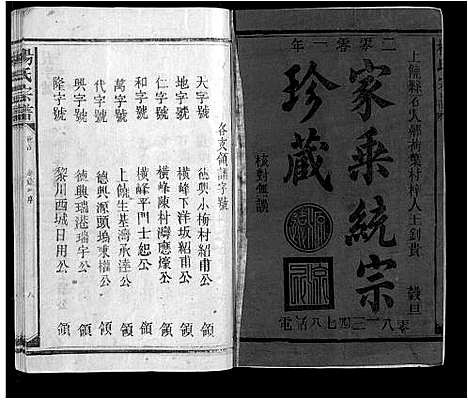 年一零零二
上饒縣石人鄉荷葉村梓人王釗貴 穀旦
家乘統宗
珍藏
核對無誤
電話
各支領譜字號
天字號 德興小梅村紹甫公 領
地字號 橫峰下洋坂紹甫公 領
仁字號 橫峰陳村灣應爃公 領
和字號 橫峰平門士恕公 領
萬字號 上饒生基灣承逵公 領
代字號 德興源頭塢執中公 領
興字號 德興瑞港瑞宇公 領
隆字號 黎川西城日用公 領
楊氏宗譜